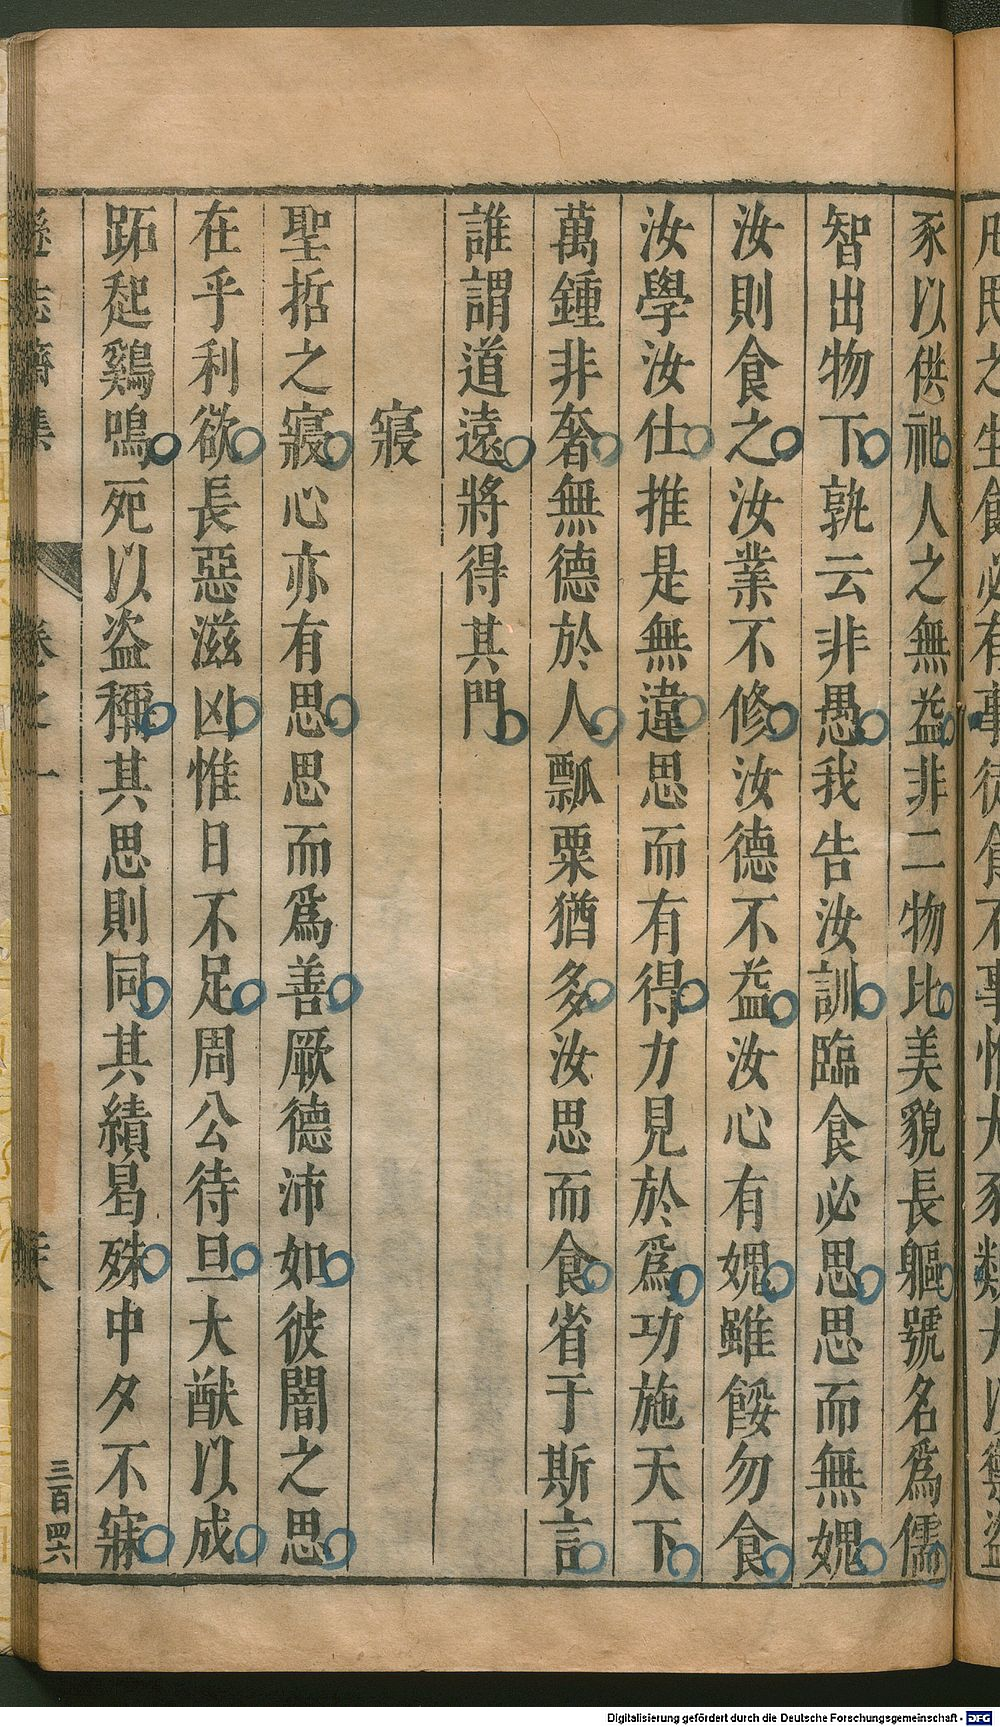 豕以供祀人之無益非二物比美貌長軀號名爲儒
智出物下孰云非愚我告汝訓臨食必思思而無媿
汝則食之汝業不修汝德不益汝心有媿雖餒勿食
汝學汝仕推是無違思而有得力見於爲功施天下
萬鍾非奢無德於人瓢粟猶多汝思而食省于斯言
誰謂道遠將得其門
寢
聖哲之寢心亦有思思而爲善厥德沛如彼闇之思
在乎利欲長惡滋凶惟日不足周公待旦大猷以成
跖起鷄鳴死以盗稱其思則同其績曷殊中夕不寐
遜志齋集
卷之一
三百四六
Digitalisierung gefördert durch die Deutsche Forschungsgemeinschaft - DFG